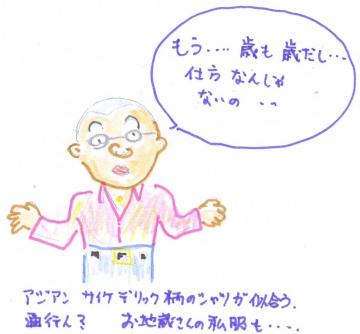 もう‥‥歳も歳だし‥‥
仕方なんじゃ
ないの‥‥
アジアン サイケデリック柄のシャツが似合う.
画行人? お地蔵さんの私服も‥‥.